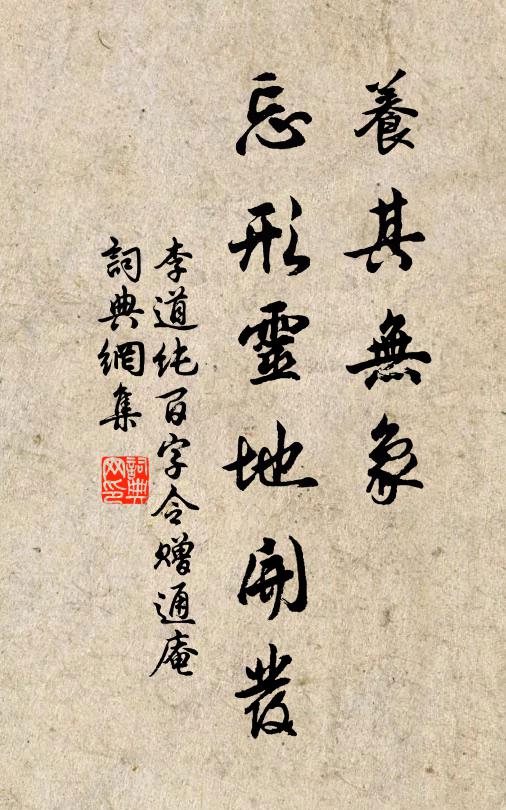 養其無象
忘形靈地開發
李道純百字令赠通庵
詞典網集
詞典网印